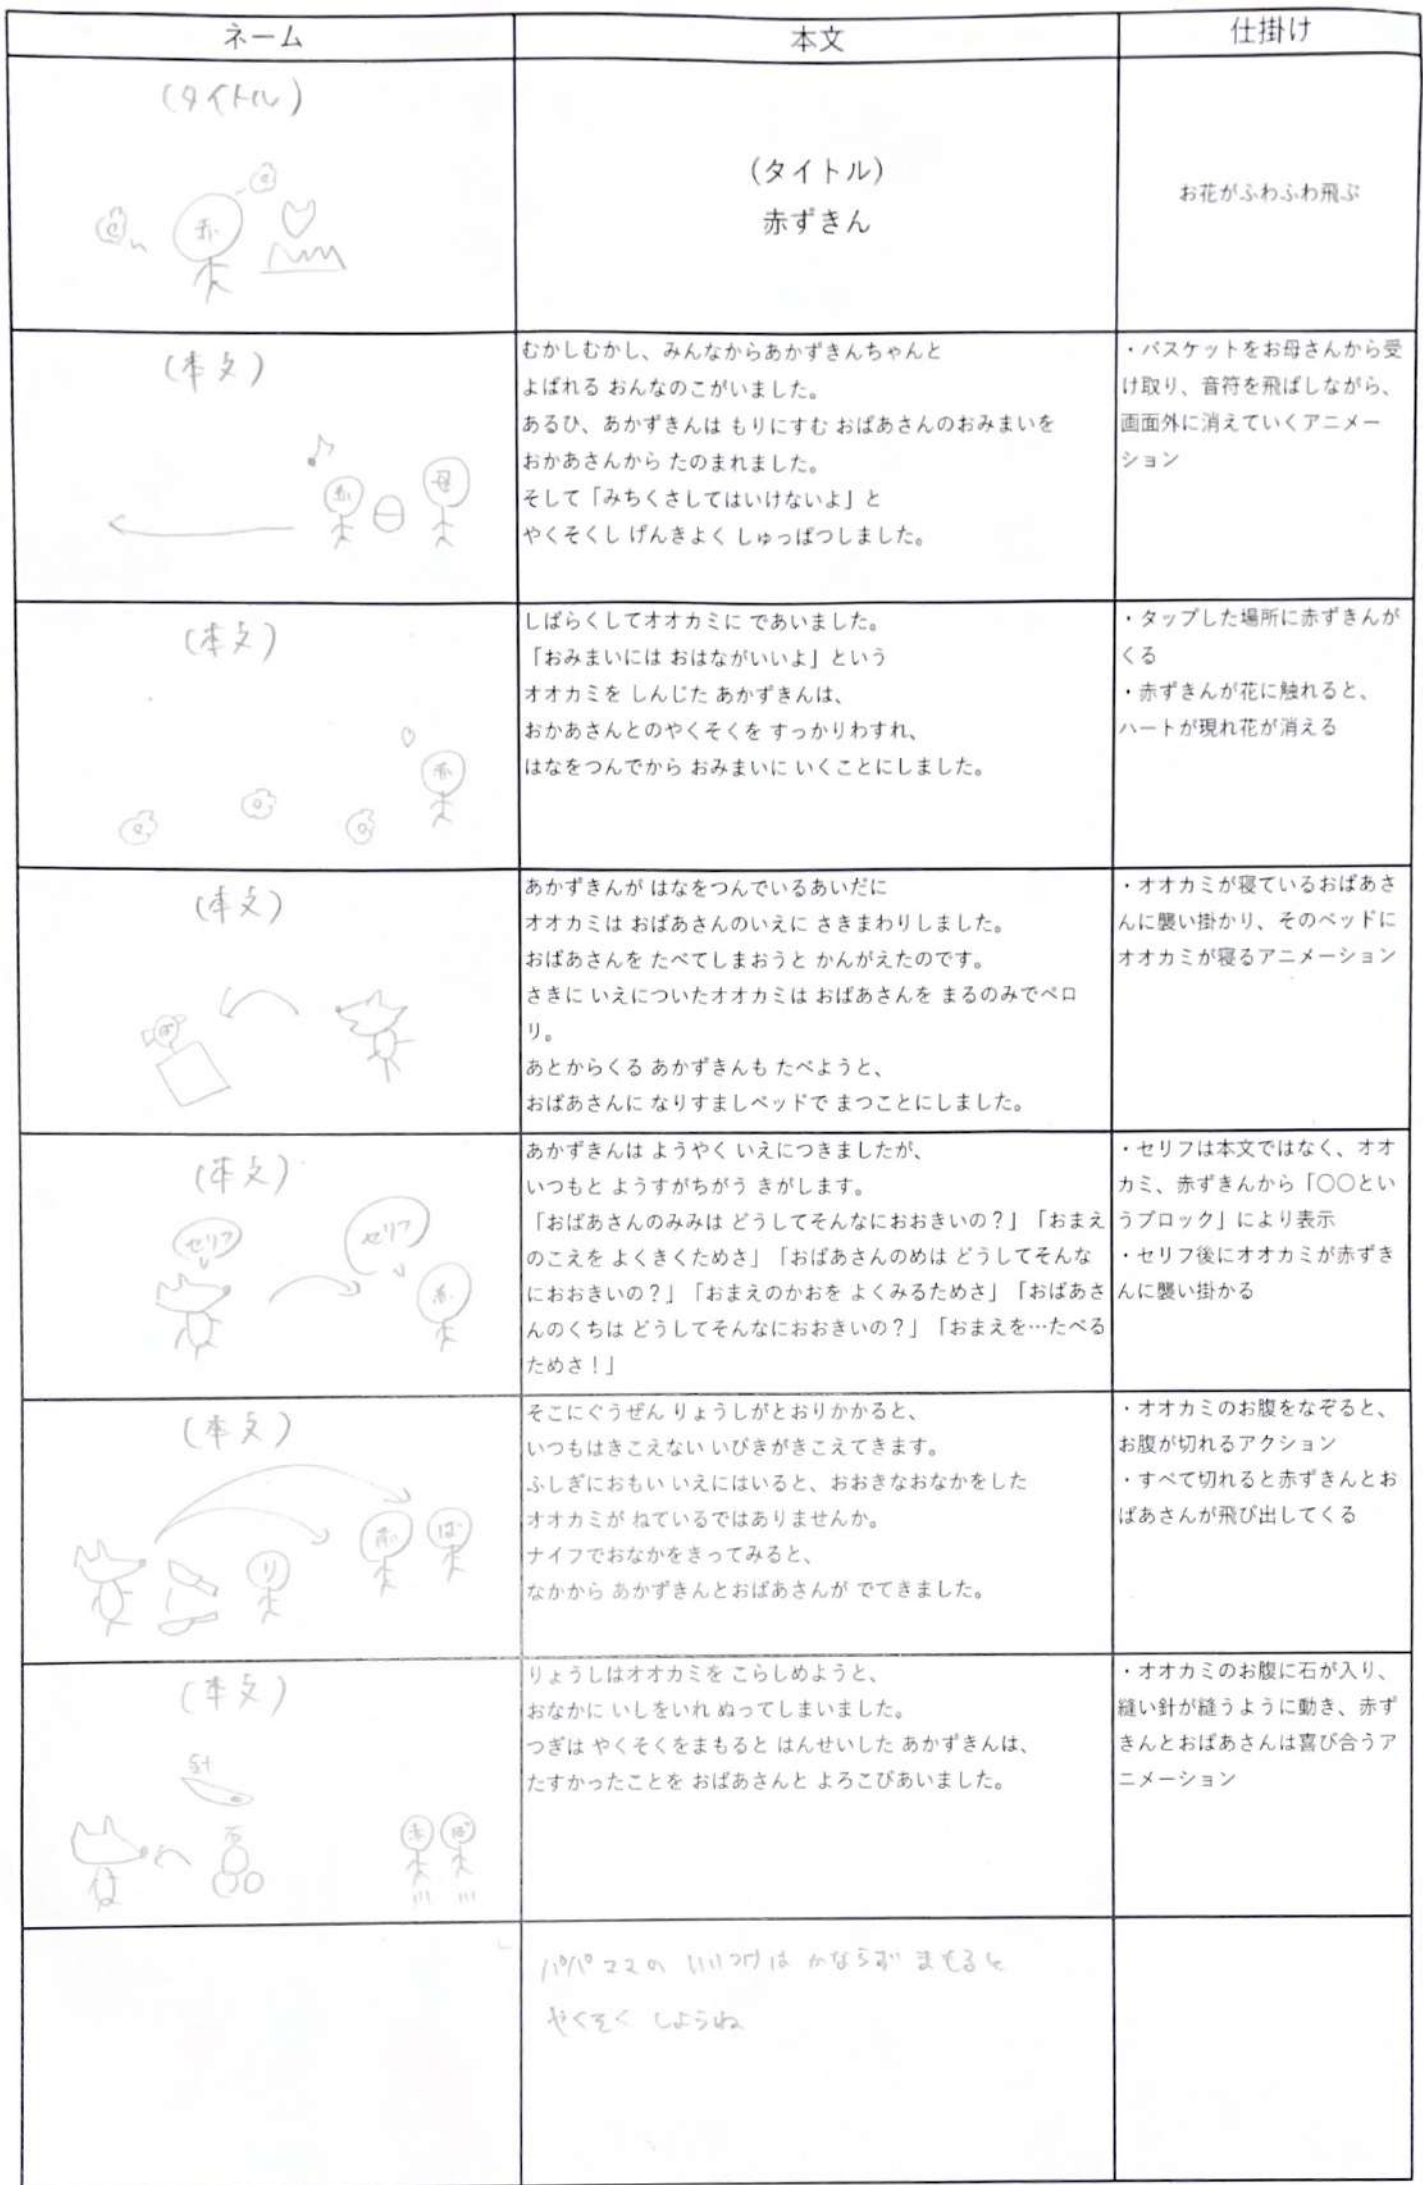 ネーム
本文
仕掛け
(タイトル)
赤
(タイトル)
赤ずきん
お花がふわふわ飛ぶ
(本文)
赤
母
むかしむかし、みんなからあかずきんちゃんと
よばれる おんなのこがいました。
あるひ、あかずきんは もりにすむ おばあさんのおみまいを
おかあさんから たのまれました。
そして「みちくさしてはいけないよ」と
やくそくし げんきよく しゅっぱつしました。
・バスケットをお母さんから受
け取り、音符を飛ばしながら、
画面外に消えていくアニメー
ション
(本文)
赤
しばらくしてオオカミに であいました。
「おみまいには おはながいいよ」という
オオカミを しんじた あかずきんは、
おかあさんとのやくそくを すっかりわすれ、
はなをつんでから おみまいに いくことにしました。
・タップした場所に赤ずきんが
くる
・赤ずきんが花に触れると、
ハートが現れ花が消える
(本文)
ば
あかずきんが はなをつんでいるあいだに
オオカミは おばあさんのいえに さきまわりしました。
おばあさんを たべてしまおうと かんがえたのです。
さきに いえについたオオカミは おばあさんを まるのみでペロ
リ。
あとからくる あかずきんも たべようと、
おばあさんに なりすましベッドで まつことにしました。
・オオカミが寝ているおばあさ
んに襲い掛かり、そのベッドに
オオカミが寝るアニメーション
(本文)
セリフ
セリフ
赤
あかずきんは ようやく いえにつきましたが、
いつもと ようすがちがう きがします。
「おばあさんのみみは どうしてそんなにおおきいの？」「おまえ
のこえを よくきくためさ」「おばあさんのめは どうしてそんな
におおきいの？」「おまえのかおを よくみるためさ」「おばあさ
んのくちは どうしてそんなにおおきいの？」「おまえを…たべる
ためさ！」
・セリフは本文ではなく、オオ
カミ、赤ずきんから「〇〇とい
うブロック」により表示
・セリフ後にオオカミが赤ずき
んに襲い掛かる
(本文)
り
赤
ば
そこにぐうぜん りょうしがとおりかかると、
いつもはきこえない いびきがきこえてきます。
ふしぎにおもい いえにはいると、おおきなおなかをした
オオカミが ねているではありませんか。
ナイフでおなかをきってみると、
なかから あかずきんとおばあさんが でてきました。
・オオカミのお腹をなぞると、
お腹が切れるアクション
・すべて切れると赤ずきんとお
ばあさんが飛び出してくる
(本文)
針
石
赤
ば
りょうしはオオカミを こらしめようと、
おなかに いしをいれ ぬってしまいました。
つぎは やくそくをまもると はんせいした あかずきんは、
たすかったことを おばあさんと よろこびあいました。
・オオカミのお腹に石が入り、
縫い針が縫うように動き、赤ず
きんとおばあさんは喜び合うア
ニメーション
パパママの いいつけは かならず まもると
やくそく しようね